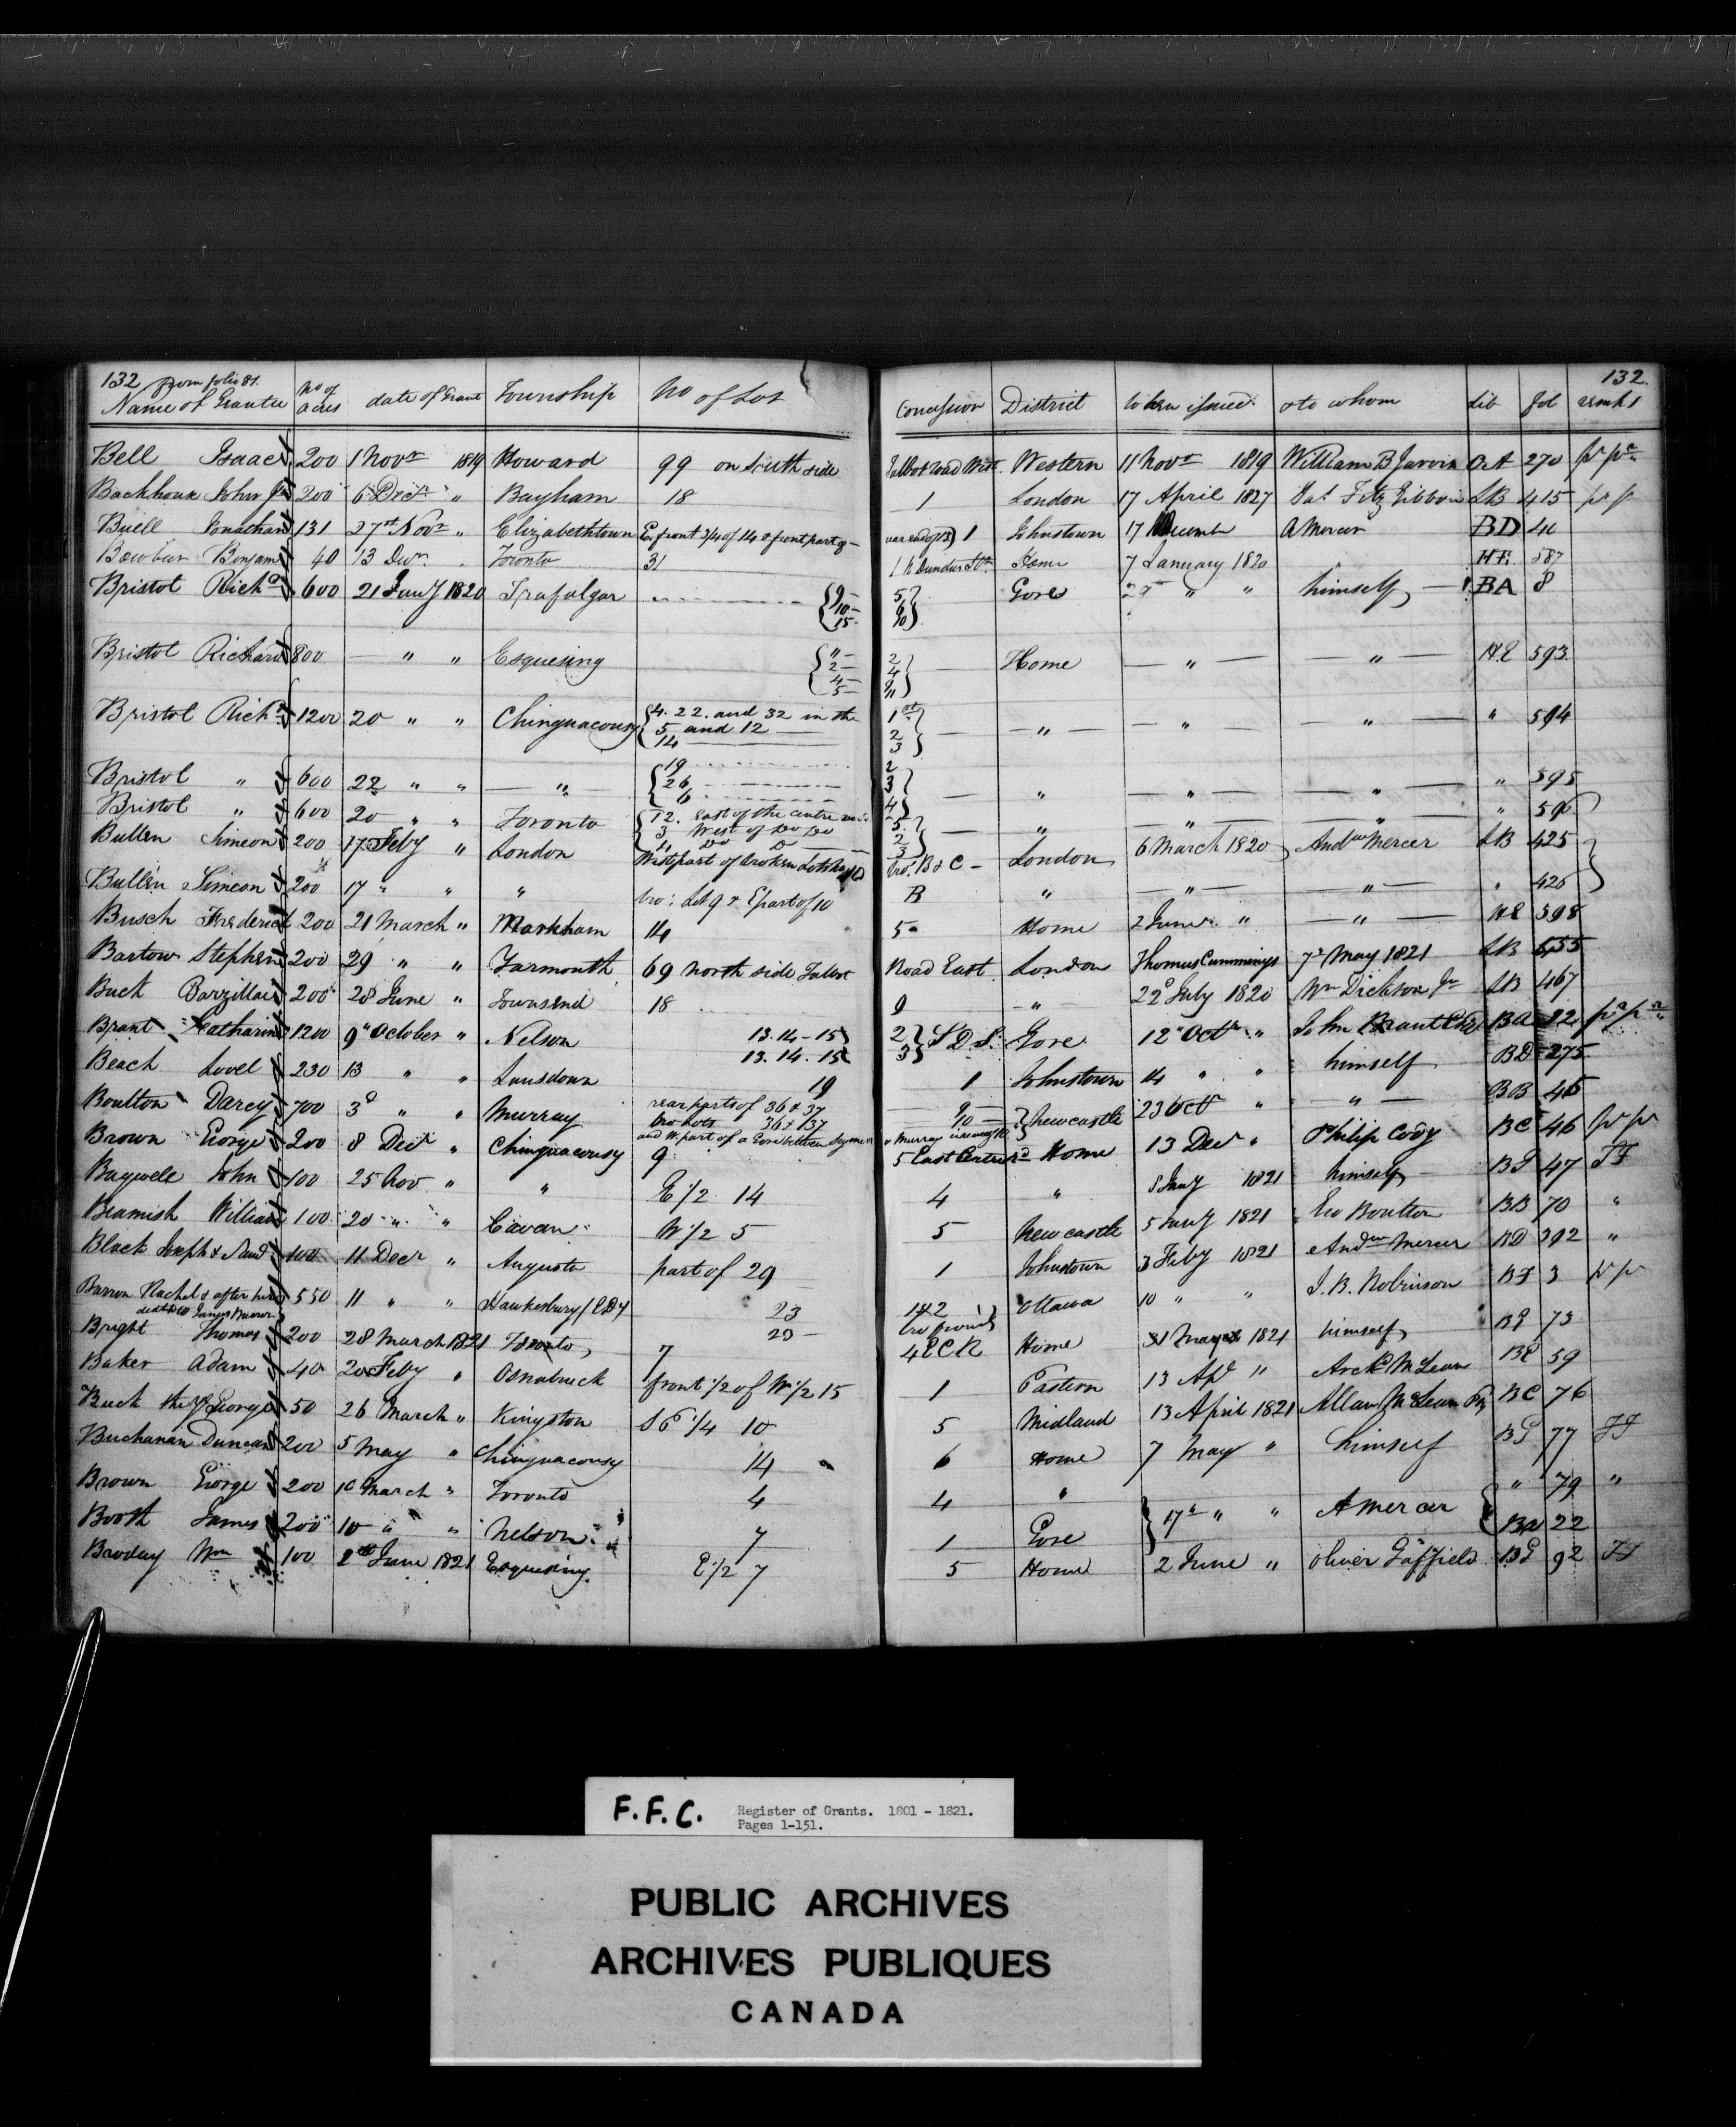 132 from folio 81.
Name of Grantee No of acres date of Grant Township No of Lot
Concession District When issued & to whom Lib Fol remks 132.
Bell Isaac 200 1 Novr 1819 Howard 99 on South side Talbot road West Western 11 Novr 1819 William B Jarvis 270
Backhouse John Jr 200 6 Decr " Bayham 18 1 London 17 April 1827 Jas FitzGibbon LB 415
Buell Jonathan 131 27th Novr " Elizabethtown E. front 3/4 of 14 & front part 9 1 Johnstown 17 Decembr A Mercer BD
Benjamin 40 13 Decr " Toronto 31 1 N Dundas St Home 7 January 1820 " HE 587
Bristol Richd 600 21 Jany 1820 Trafalgar 9 10 15 5 9 10 Gore " " himself BA 8
Bristol Richard 800 " " Esquesing 11 2 4 5 2 4 9 11 Home " " HE 593
Bristol Richd 1200 20 " " Chinguacousy 4. 22. and 32 in the 1st
5 and 12 2
14 3 " " " " 594
Bristol " 600 22 " " " 19 26 6 2 3 4 " " " " 595
Bristol " 600 20 " " Toronto 12. East of the centre 5.
3 West of Do Do 2
4 Do Do 3 " " " " 596
Bullen Simeon 200 17 Feby " London West part of broken Lots bro: B & C London 6 March 1820 Andw Mercer LB 425
Bullen Simeon 200 17 " " " bro: Lot 9 & E part of 10 B " " " " 426
Busch Frederick 200 21 March " Markham 14 5 Home 2 June " " HE 598
Bartow Stephen 200 29 " " Yarmouth 69 North side Talbot Road East London Thomas Cummings 7 May 1821 LB 455
Buck Barzillai 200 28 June " Townsend 18 9 " 22d July 1820 Wm Dickson Jr LB 467
Brant Catharine 1200 9 October " Nelson 13. 14 - 15 2
13. 14. 15 3 S D S. Gore 12 Octr " John Brant BA
Beach Lovel 230 13 " " Lansdown 19 1 Johnstown 14 " " himself BD 275
Boulton Darcy 700 3d " " Murray rear parts of 36 & 37 9
bro Lots 36 & 37 10 Newcastle 23 Octr " " BB 46
and W. part of a Gore between
Brown George 200 8 Decr " Chinguacousy 9 5 East Centre Rd Home 13 Decr " Philip Cody 46
Bagwell John 100 25 Nov " " E 1/2 14 4 " 5 Jany 1821 himself 47
Beamish William 100 20 " " Cavan W 1/2 5 5 Newcastle 5 Jany 1821 Geo Boulton BB 70 "
Black Joseph & 100 11 Decr " Augusta part of 29 1 Johnstown 3 Feby 1821 Andw Mercer BD 392 "
Barron Rachel & after her
death to James Barron 550 11 " " Hawkesbury 23 1 & 2
23 bro front Ottawa 10 " " J. B. Robinson BF 3
Bright Thomas 200 28 March 1821 Toronto 7 4 E C R Home 31 May 1821 himself 73
Baker Adam 40 20 Feby " Osnabruck front 1/2 of W 1/2 15 1 Eastern 13 Apl " Archd McLean BE 59
Buck the Yr George 50 26 March " Kingston S E 1/4 10 5 Midland 13 April 1821 Allan McLean BC 76
Buchanan Duncan 200 5 May " Chinguacousy 14 6 Home 7 May " himself 77
Brown George 200 10 March " Toronto 4 4 " 17 " " A Mercer " 79 "
Booth James 200 10 " " Nelson 7 1 Gore BA 22
Wm 100 2nd June 1821 Esquesing E 1/2 7 5 Home 2 June " Oliver Gaffield 92
F.F.C. Register of Grants. 1801 - 1821.
Pages 1-151.
PUBLIC ARCHIVES
ARCHIVES PUBLIQUES
CANADA